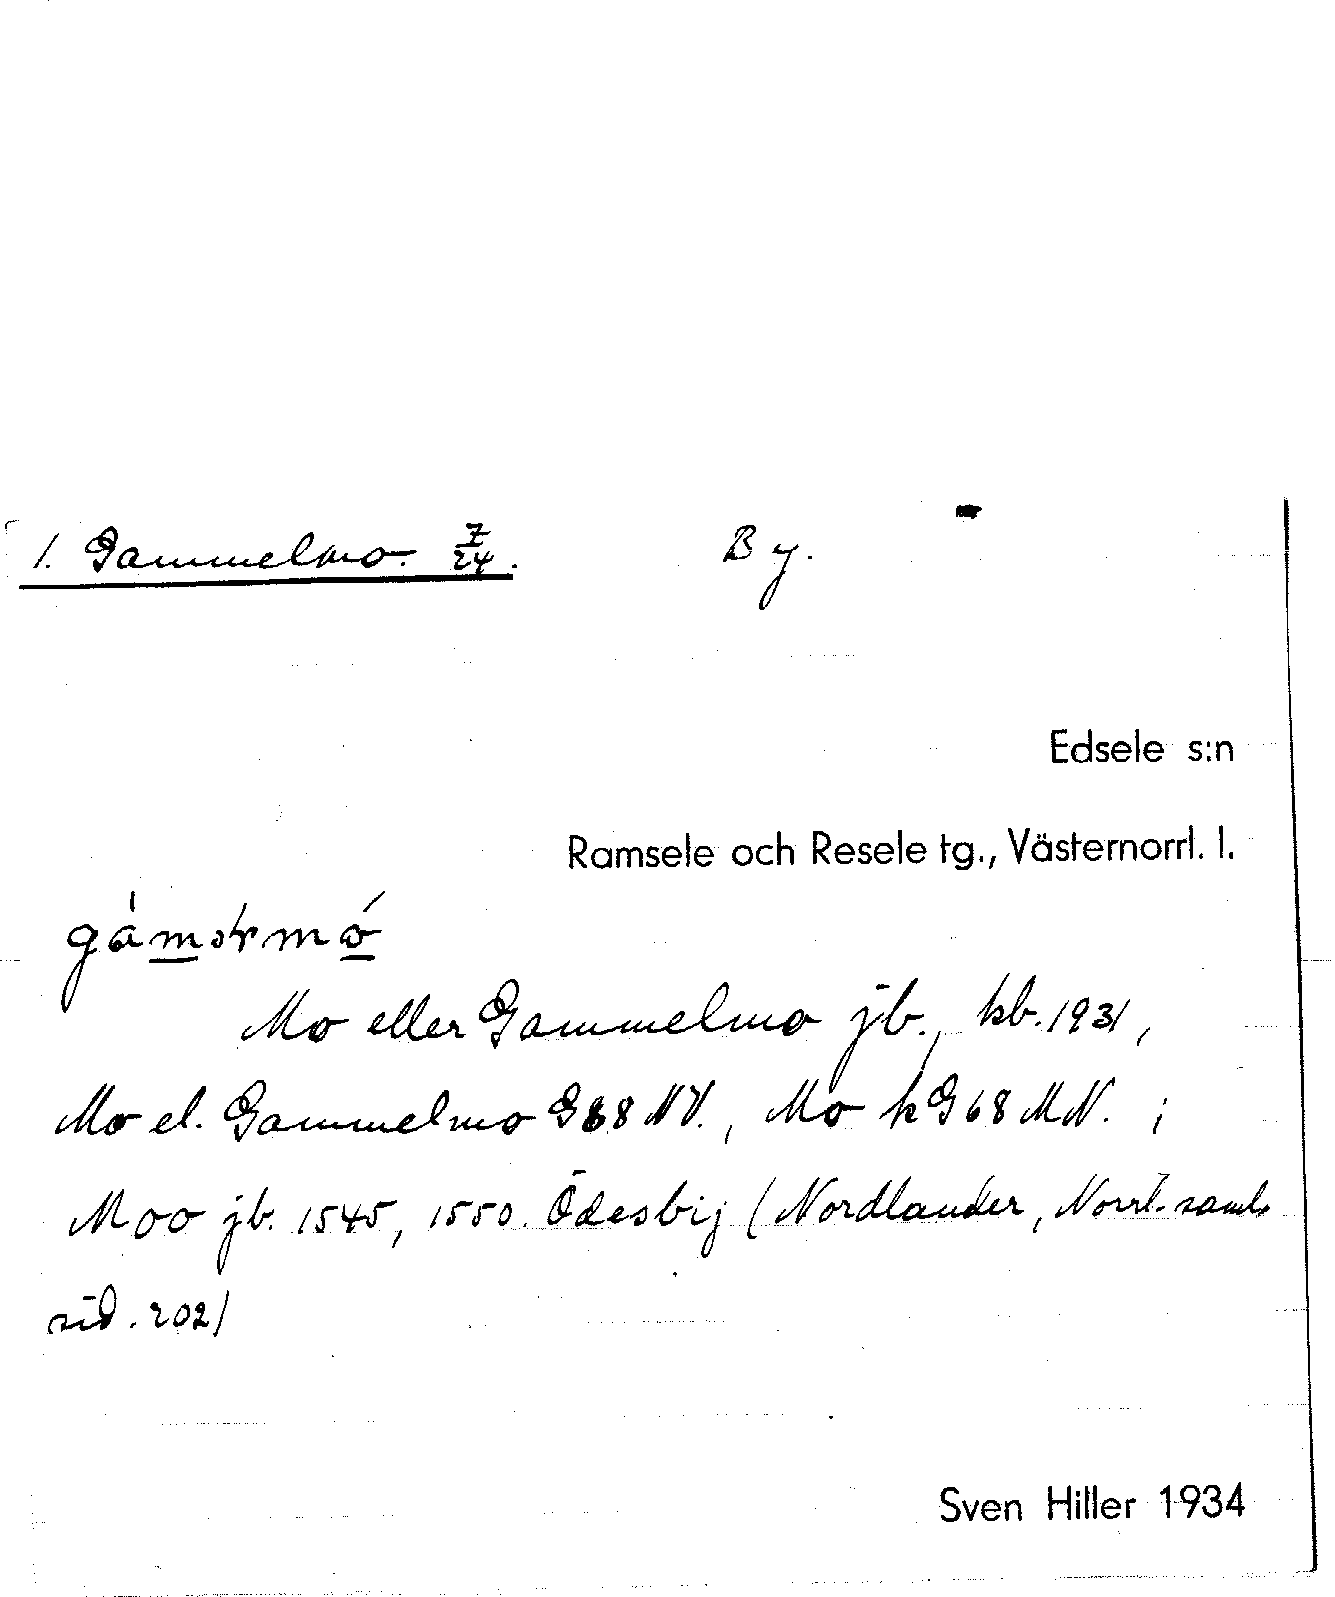 1. Gammelmo. Z/24. By.
Edsele s:n
Ramsele och Resele tg., Västernorrl. l.
Mo eller Gammelmo jb., kb. 1931,
Mo el. Gammelmo G68 NV., Mo kG68 MN. ;
Moo jb. 1545, 1550. Ödesbij (Nordlander, Norrl. saml.
sid. 202)
Sven Hiller 1934